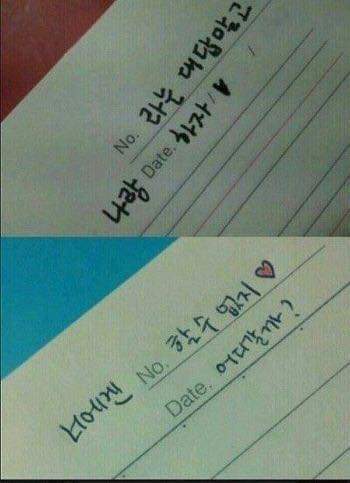 No. 라는 대답말고
나랑 Date. 하자 / ♥ /
너에겐 No. 할수 없지♡
Date. 어디갈까?